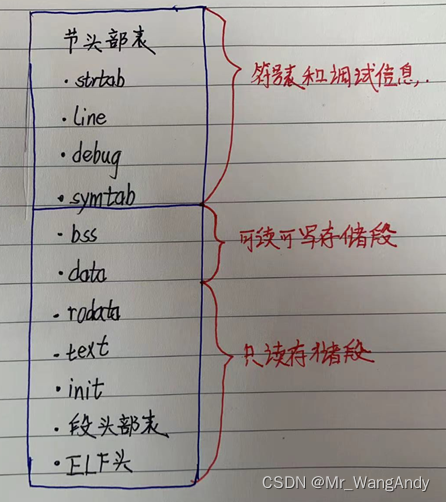 节头部表
·strtab
·line
·debug
·symtab
符号表和调试信息.
·bss
·data
可读可写存储段
·rodata
·text
·init
·段头部表
·ELF头
只读存储段
CSDN @Mr_WangAndy